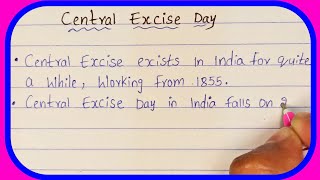 Central Excise Day
• Central Excise exists in India for quite
a while, Working from 1855.
• Central Excise Day in India falls on